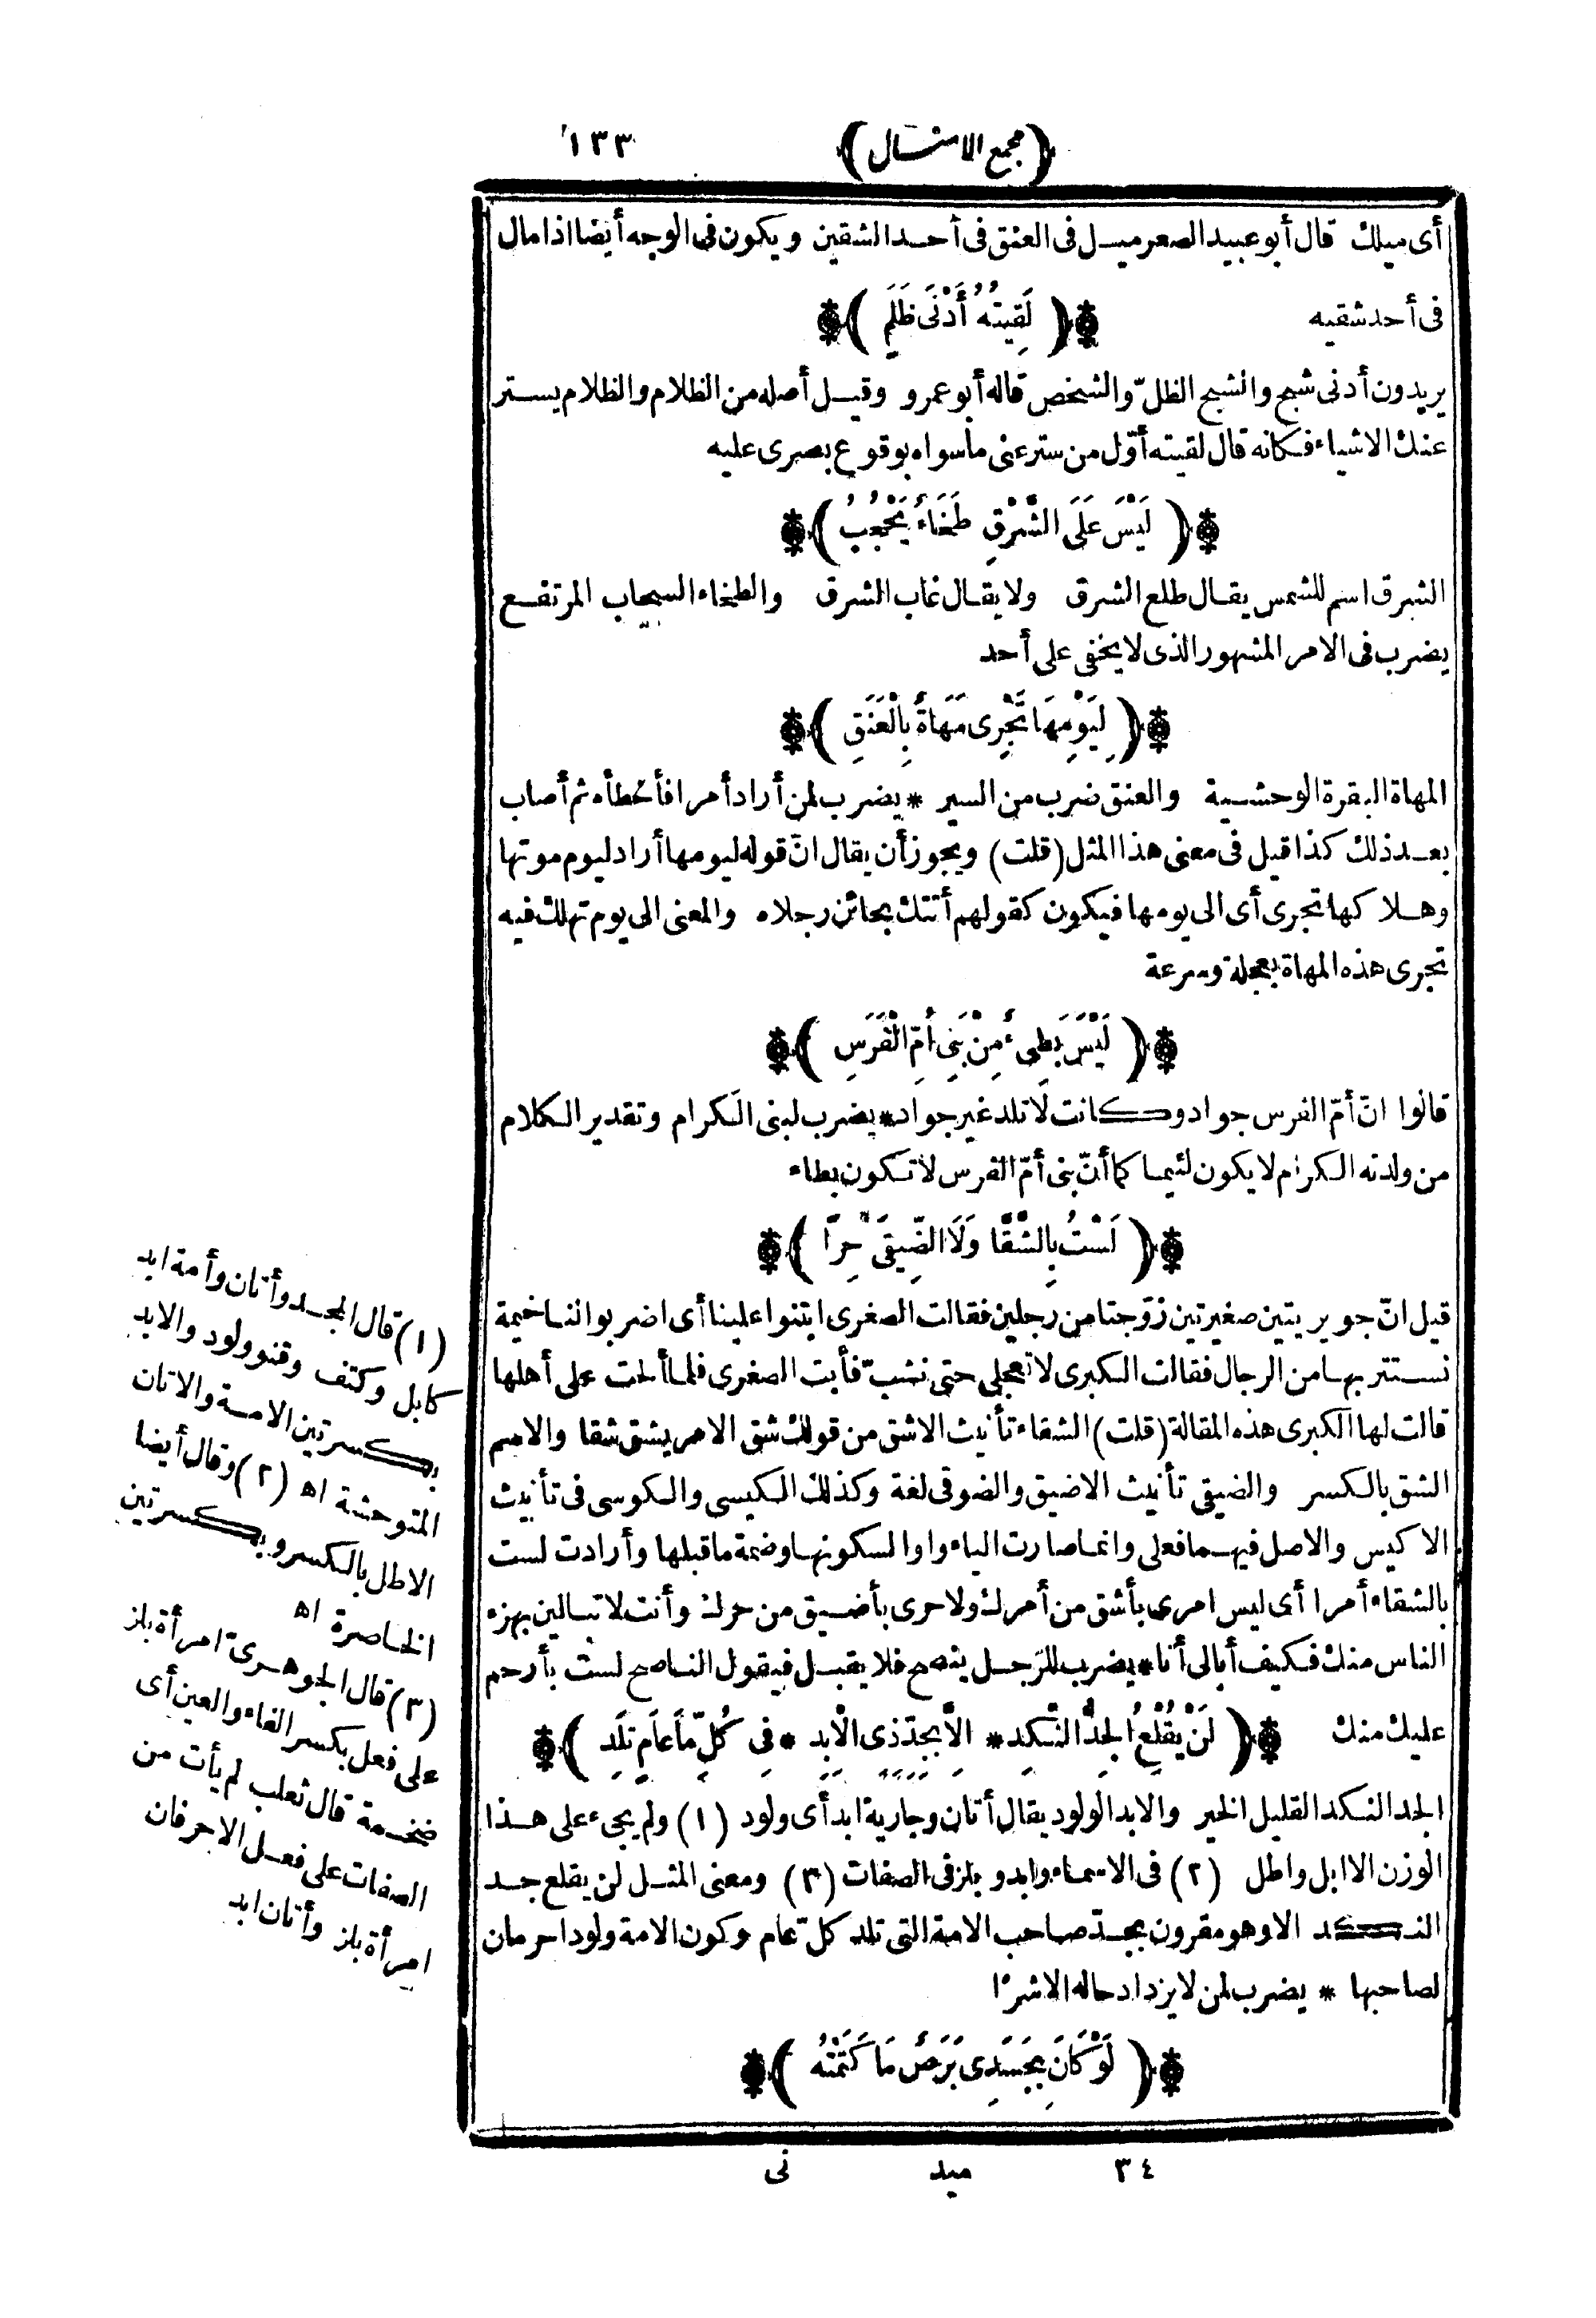 ﴿ مجمع الامثال ﴾ ١٣٣
أى ميلك قال أبو عبيد الصعر ميل فى العنق فى أحد الشقين ويكون فى الوجه أيضا اذا مال
فى أحد شقيه ﴿ لَقِيتُهُ أَدْنَى ظَلَمٍ ﴾
يريدون أدنى شبح والشبح الظلّ والشخص قاله أبو عمرو وقيل أصله من الظلام والظلام يستر
عنك الاشياء فكانه قال لقيته أوّل من ستر عنى ما سواه بوقوع بصرى عليه
﴿ لَيْسَ عَلَى الشَّرْقِ طَخَاءٌ يَحْجُبُ ﴾
الشرق اسم للشمس يقال طلع الشرق ولا يقال غاب الشرق والطخاء السحاب المرتفع
يضرب فى الامر المشهور الذى لا يخفى على أحد
﴿ لِيَوْمِهَا تَجْرِى مَهَاةٌ بِالْعَنَقِ ﴾
المهاة البقرة الوحشية والعنق ضرب من السير * يضرب لمن أراد أمرا فأخطأه ثم أصاب
بعد ذلك كذا قيل فى معنى هذا المثل (قلت) ويجوز أن يقال انّ قوله ليومها أراد ليوم موتها
وهلاكها تجرى أى الى يومها فيكون كقولهم أتتك بحائن رجلاه والمعنى الى يوم تهلك فيه
تجرى هذه المهاة بعجلة وسرعة
﴿ لَيْسَ بَطِىءٌ مِنْ بَنِى أُمِّ الْفَرَسِ ﴾
قالوا انّ أمّ الفرس جواد وكانت لا تلد غير جواد * يضرب لبنى الكرام وتقدير الكلام
من ولدته الكرام لا يكون لئيما كما أنّ بنى أمّ الفرس لا تكون بطاء
﴿ لَسْتُ بِالشَّقَّا وَلَا الضِّيقَى حِرًّا ﴾
قيل انّ جويريتين صغيرتين زوّجتا من رجلين فقالت الصغرى ابتنوا علينا أى اضربوا لنا خيمة
نستتر بها من الرجال فقالت الكبرى لا تعجلى حتى نشبّ فأبت الصغرى فلما ألحت على أهلها
قالت لها الكبرى هذه المقالة (قلت) الشقاء تأنيث الاشق من قولك شق الامر يشق شقا والاسم
الشق بالكسر والضيقى تأنيث الاضيق والضوقى لغة وكذلك الكيسى والكوسى فى تأنيث
الاكيس والاصل فيهما فعلى وانما صارت الياء واوا لسكونها وضمة ما قبلها وأرادت لست
بالشقاء أمرا أى ليس امرى بأشق من أمرك ولا حرى بأضيق من حرك وأنت لا تبالين بهزء
الناس منك فكيف أبالى أنا * يضرب للرّجل ينصح فلا يقبل فيقول الناصح لست بأرحم
عليك منك ﴿ لَنْ يُقْلِعَ الْجِدُّ النَّكِدِ * الاَّ بِجِدِّ ذِى الْاِبِدِ * فِى كُلِّ مَا عَامٍ تَلِدِ ﴾
الجد النكد القليل الخير والابد الولود يقال أتان وجارية ابد أى ولود (١) ولم يجىء على هذا
الوزن الا ابل واطل (٢) فى الاسماء وابد وبلز فى الصفات (٣) ومعنى المثل لن يقلع جد
النكد الا وهو مقرون بجدّ صاحب الامة التى تلد كلّ عام وكون الامة ولودا حرمان
لصاحبها * يضرب لمن لا يزداد حاله الا شرّا
﴿ لَوْ كَانَ بِجَسَدِى بَرَصٌ مَا كَتَمْتُهُ ﴾
(١) قال المجد وأتان وأمة ابد
كابل وكتف وقنو ولود والابد
بكسرتين الامة والاتان
المتوحشة اه (٢) وقال أيضا
الاطل بالكسر وبكسرتين
الخاصرة اه
(٣) قال الجوهرى امرأة بلز
على فعل بكسر الفاء والعين أى
ضخمة قال ثعلب لم يأت من
الصفات على فعل الا حرفان
امرأة بلز وأتان ابد
٣٤ ميد نى